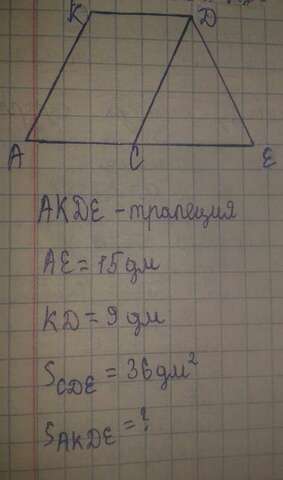 K D
A C E
AKDE - трапеция
AE = 15 дм
KD = 9 дм
S_CDE = 36 дм²
S_AKDE = ?